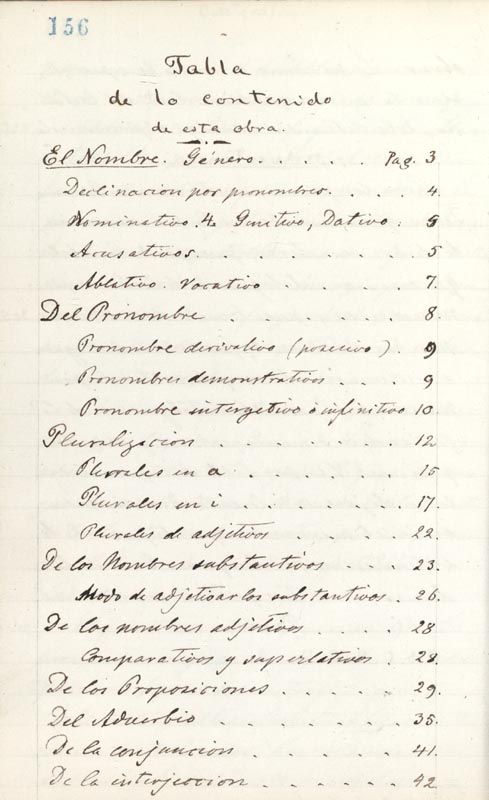 156
Tabla
de lo contenido
de esta obra.
El Nombre. Género . . . . . Pag. 3
Declinacion por pronombres . . . . 4.
Nominativo. 4 Genitivo, Dativo . 5
Acusativos . . . . . . 5
Ablativo. Vocativo . . . . 7.
Del Pronombre . . . . . . 8.
Pronombre derivativo (posecivo) . 9
Pronombres demonstrativos . . . 9
Pronombre intergetivo ó infinitivo 10.
Pluralizacion . . . . . . 12
Plurales en a . . . . . . 15
Plurales en i . . . . . . 17.
Plurales de adjetivos . . . . 22.
De los Nombres substantivos . . . 23.
Modo de adjetivar los substantivos . 26.
De los nombres adjetivos . . . . 28
Comparativos y superlativos . 28.
De los Proposiciones . . . . . 29.
Del Adverbio . . . . . . 35.
De la conjuncion . . . . . . 41.
De la interjeccion . . . . . . 42